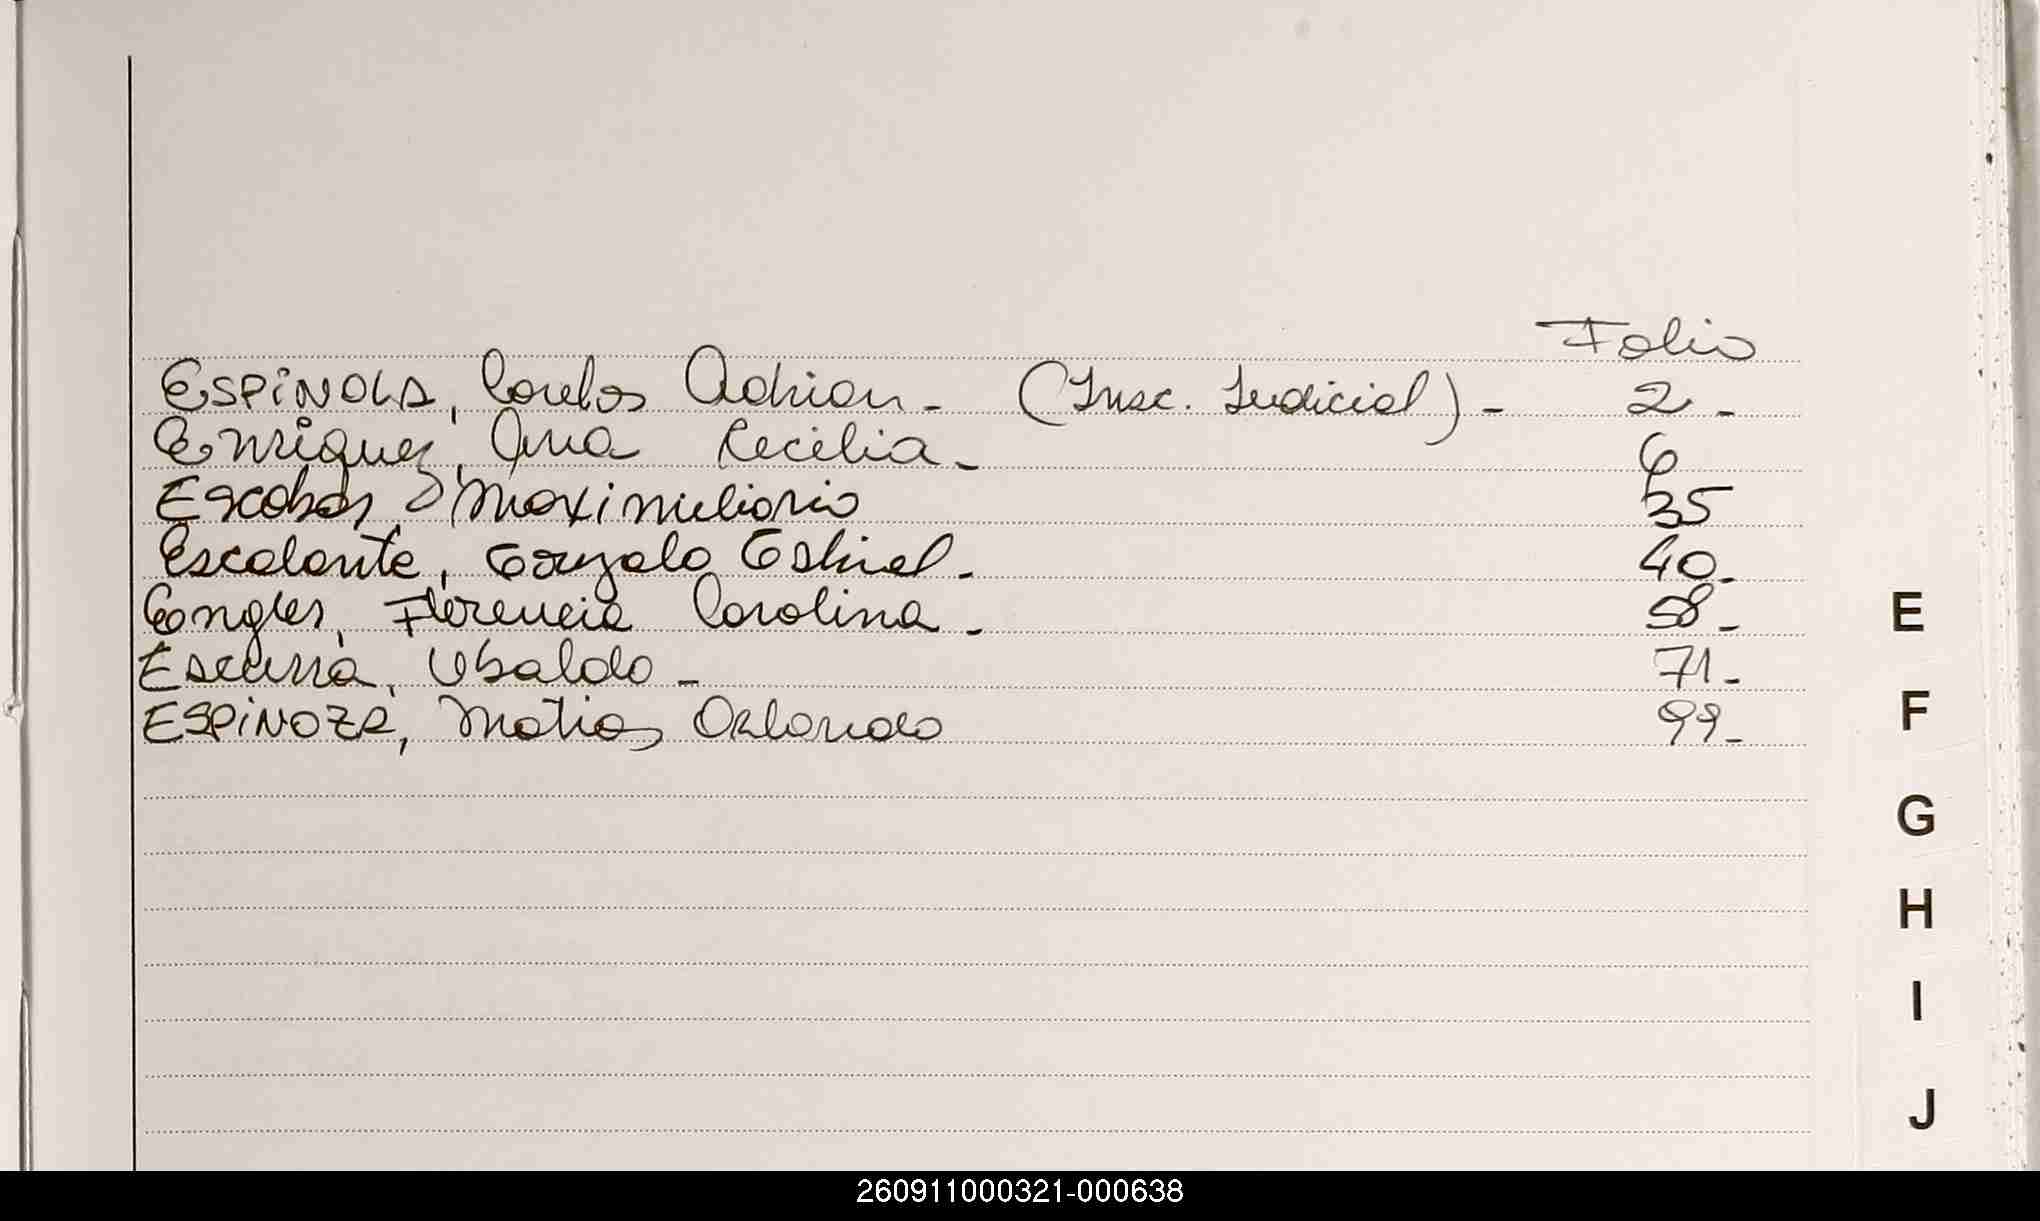 Folio
ESPINOLA, Carlos Adrian - (Insc. Judicial) - 2 -
Enriquez, Ana Cecilia - 6
Escobar, Maximiliano 35
Escalante, Gonzalo Eshiel - 40 -
Engler, Florencia Carolina - 58 -
Escurra, Ubaldo - 71 -
ESPINOZA, Matias Orlando 99 -
E
F
G
H
I
J
260911000321-000638